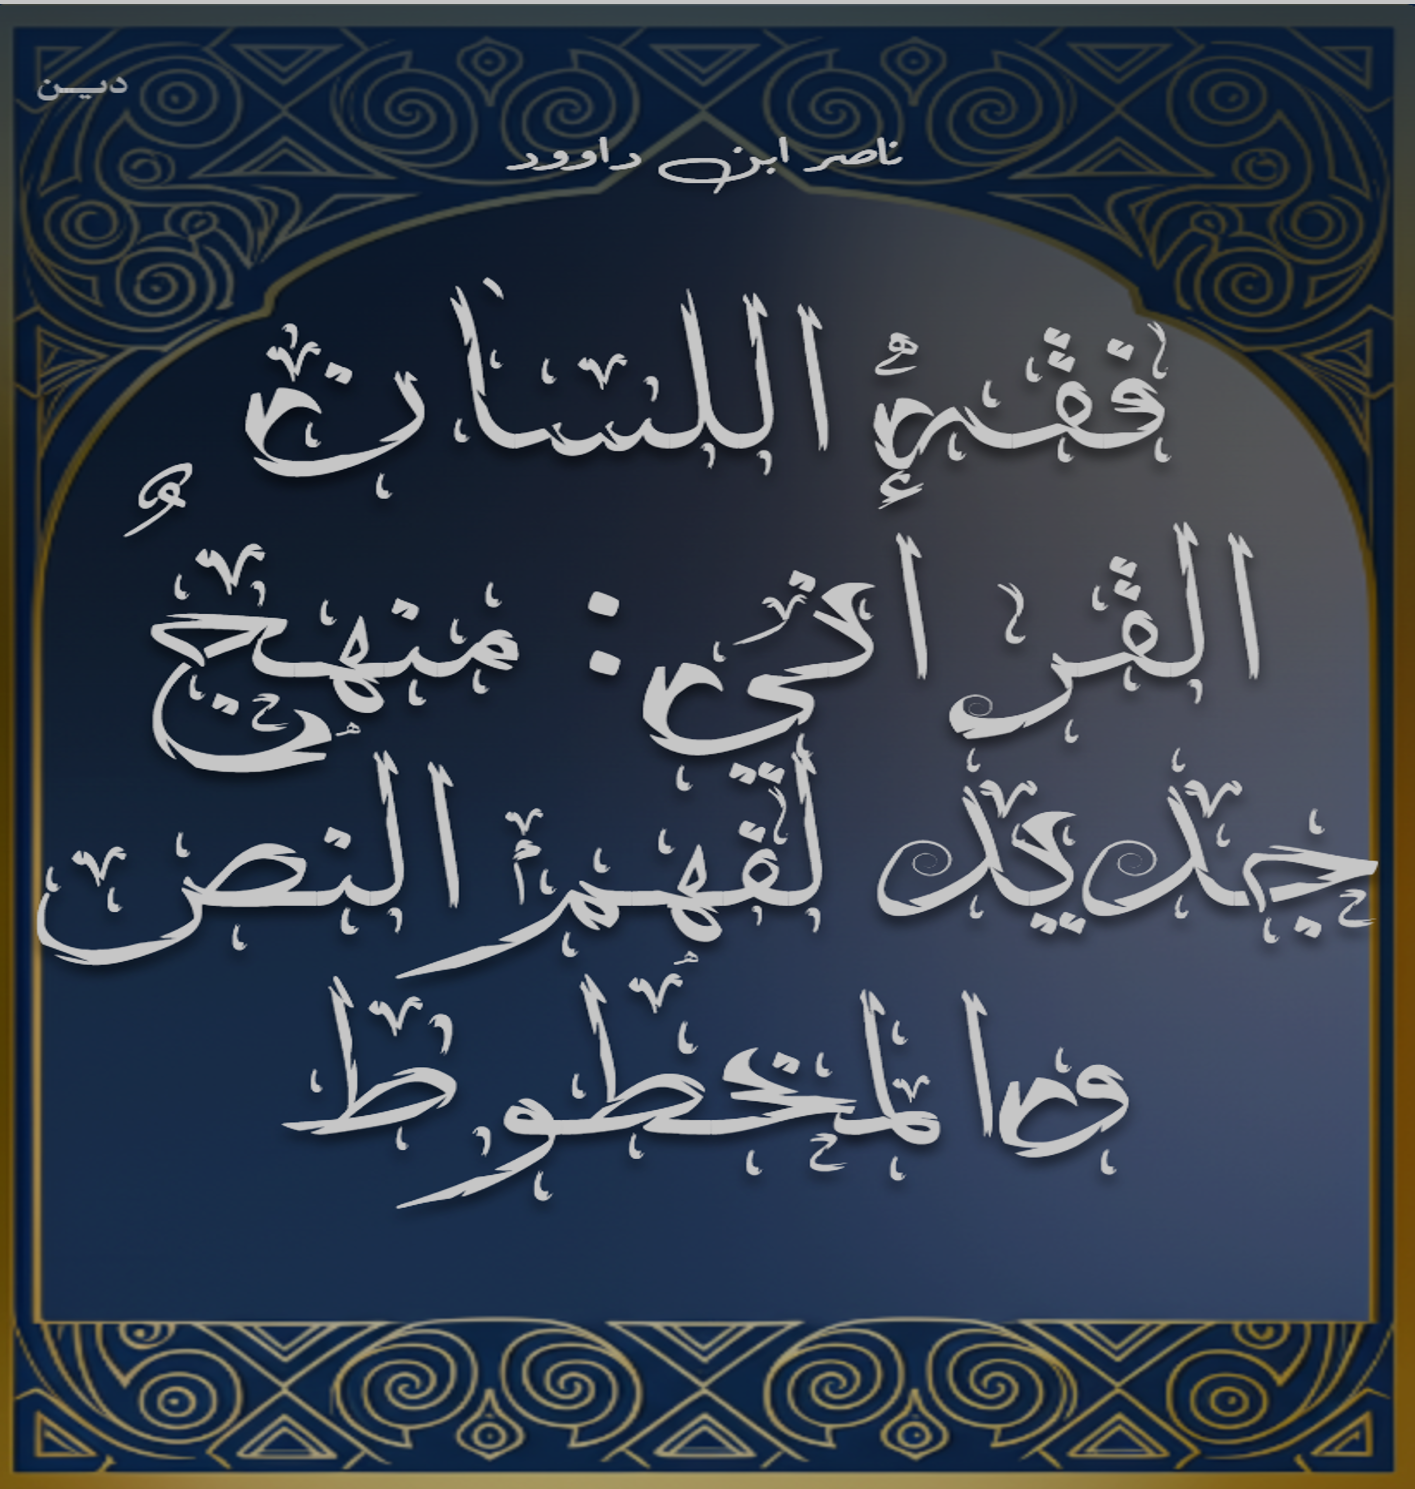 دين
ناصر ابن داوود
فقه اللسان
القرآني: منهج
جديد لفهم النص
والمخطوط